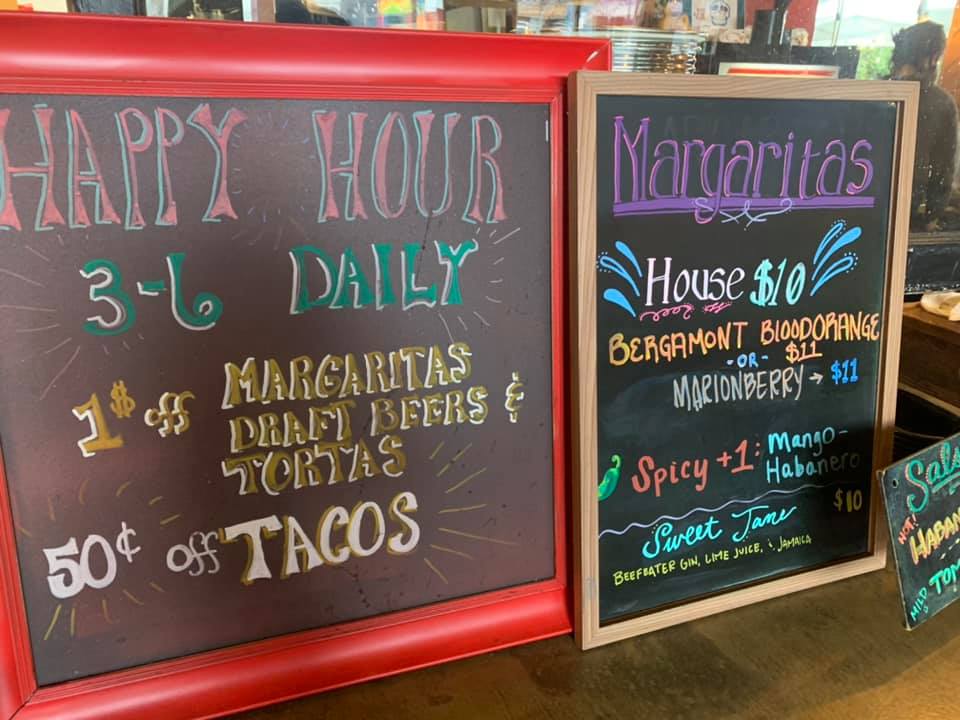 HAPPY HOUR
3-6 DAILY
1$ off MARGARITAS
DRAFT BEERS &
TORTAS
50¢ off TACOS
Margaritas
House $10
BERGAMONT BLOODORANGE
-OR- $11
MARIONBERRY → $11
Spicy +1: Mango-
Habanero
$10
Sweet Jane
BEEFEATER GIN, LIME JUICE, & JAMAICA
HOT!
MILD